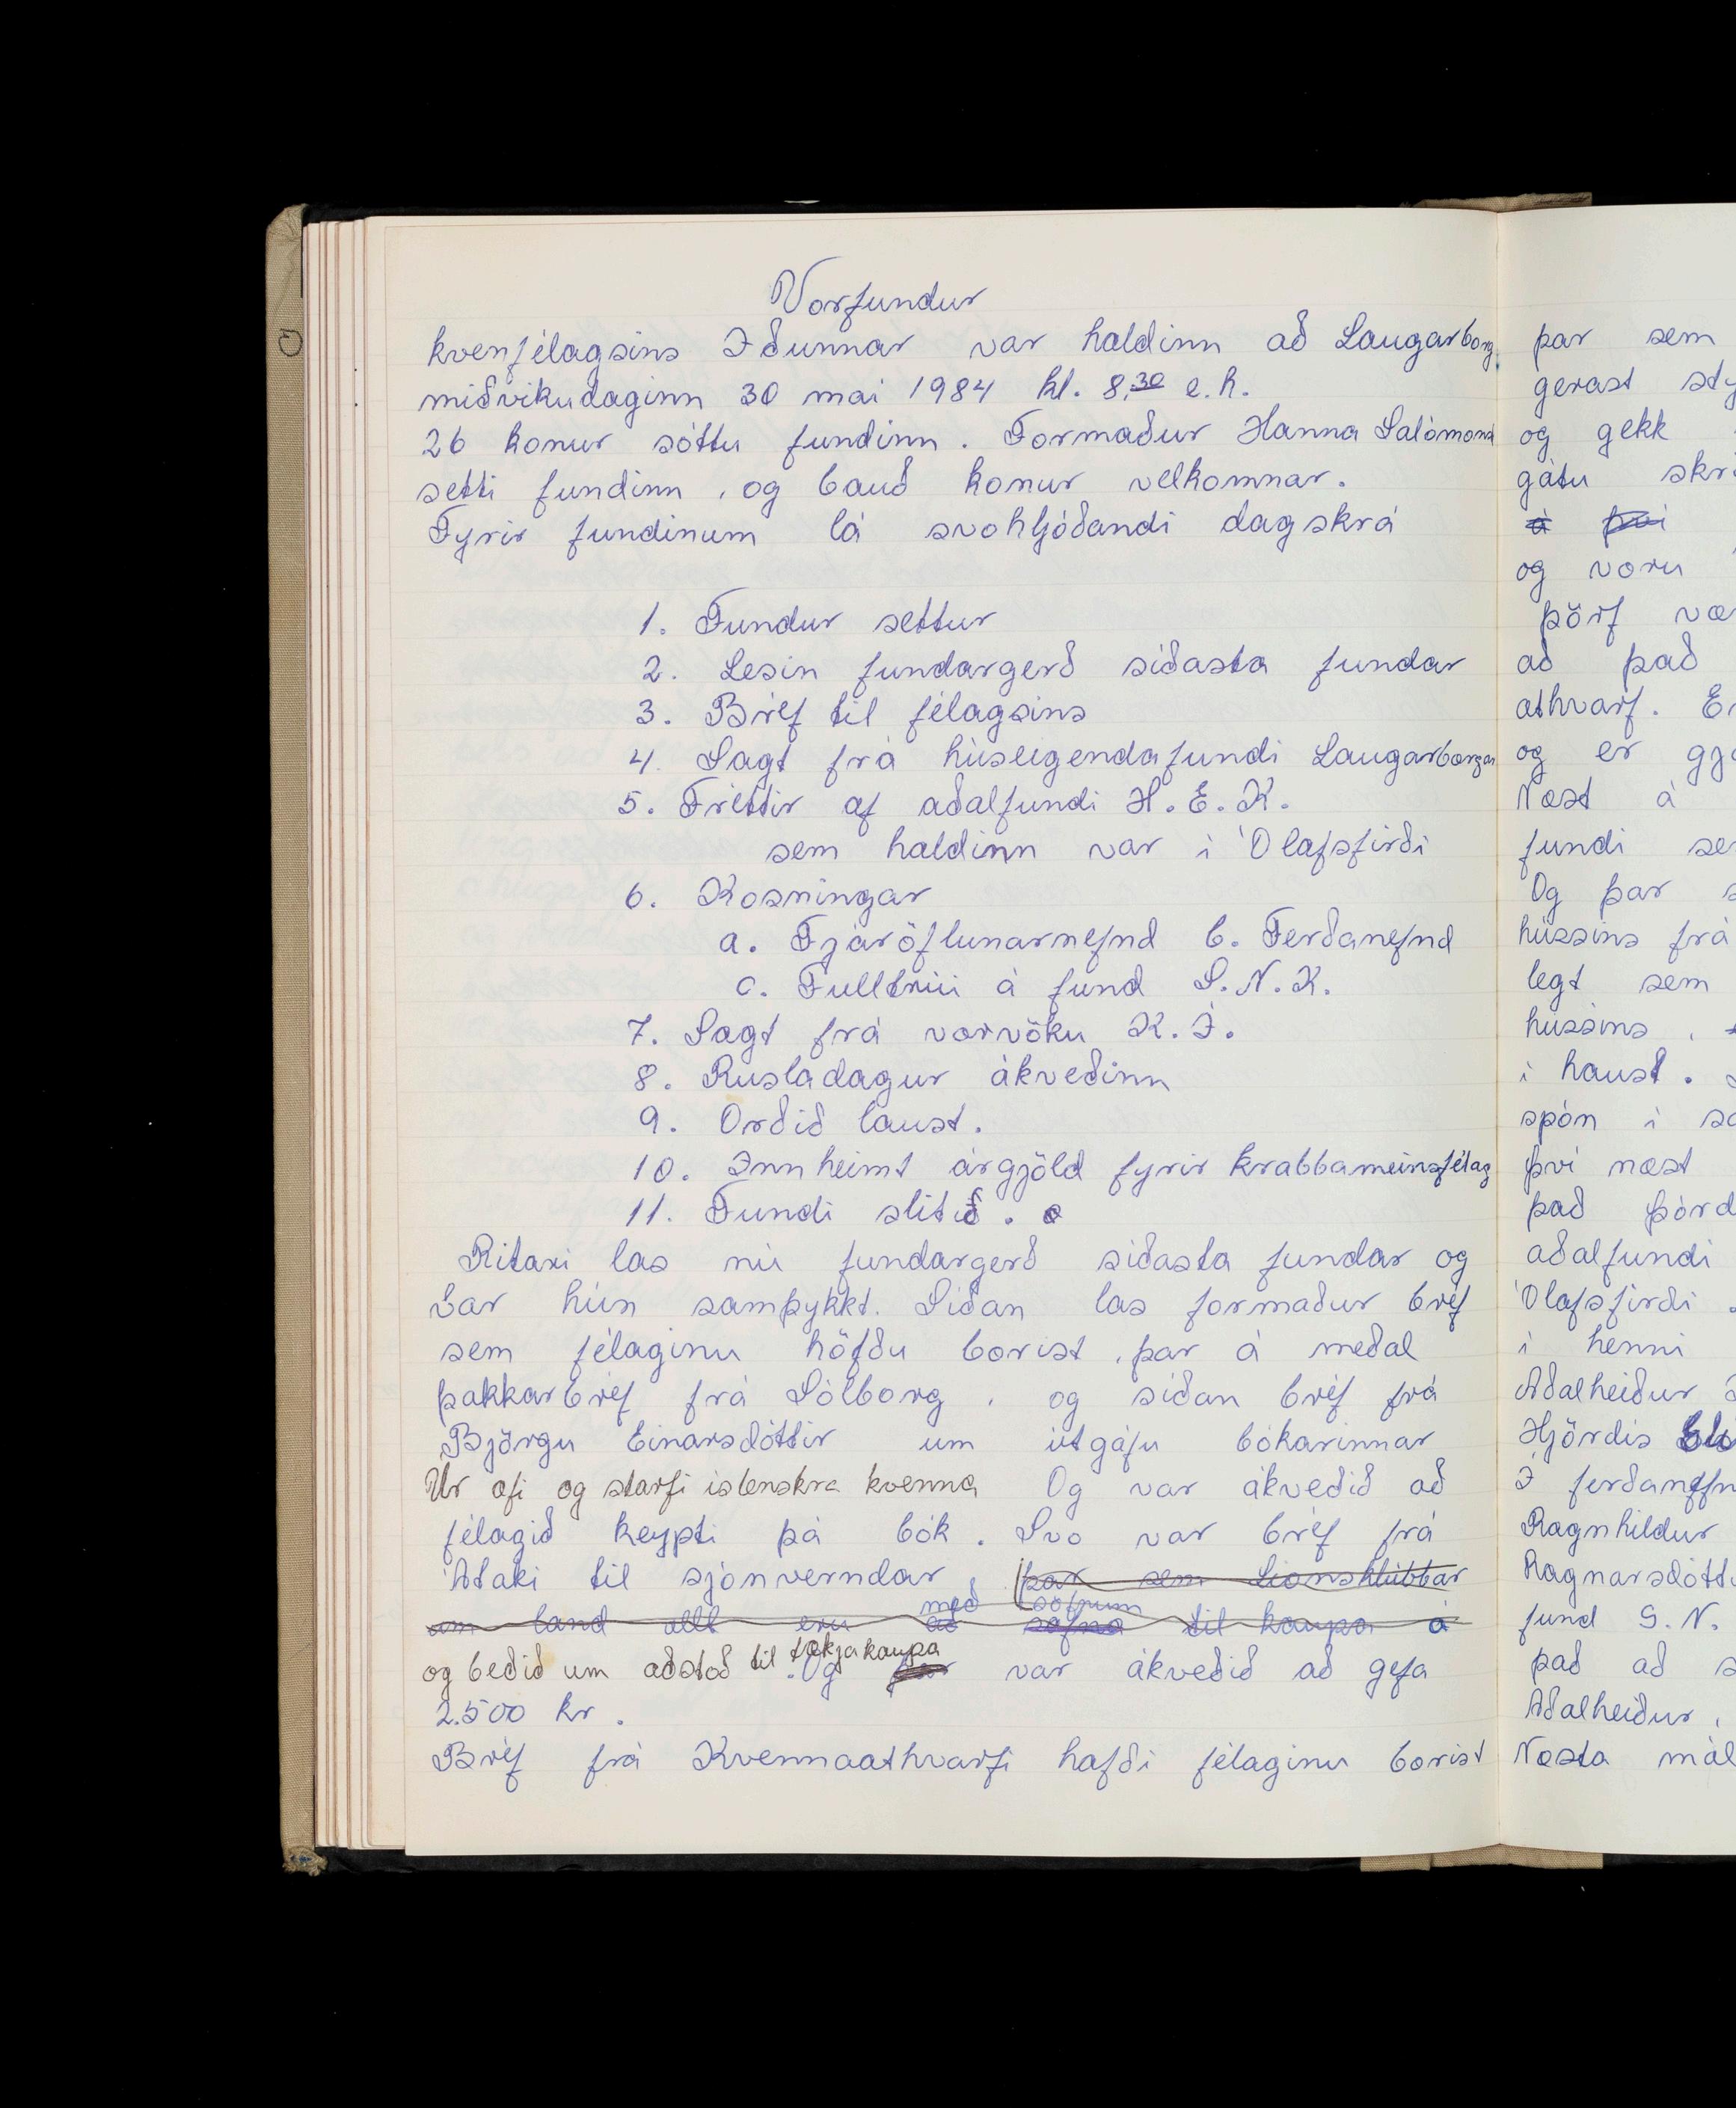 Vorfundur
kvenfélagsins Iðunnar var haldinn að Laugarborg.
miðvikudaginn 30 mai 1984 kl. 8,30 e.h.
26 konur sóttu fundinn. Formaður Hanna Salómons
setti fundinn, og bauð konur velkomnar.
Fyrir fundinum lá svohljóðandi dagskrá
1. Fundur settur
2. Lesin fundargerð síðasta fundar
3. Bréf til félagsins
4. Sagt frá húseigendafundi Laugarborgar
5. Fréttir af aðalfundi H.E.K.
sem haldinn var í Ólafsfirði
6. Kosningar
a. Fjáröflunarnefnd b. Ferðanefnd
c. Fulltrúi á fund S.N.K.
7. Sagt frá vorvöku K.I.
8. Rusladagur ákveðinn
9. Orðið laust.
10. Innheimt árgjöld fyrir krabbameinsfélag
11. Fundi slitið.
Ritari las nú fundargerð síðasta fundar og
var hún samþykkt. Síðan las formaður bréf
sem félaginu höfðu borist, þar á meðal
þakkarbréf frá Sólborg, og síðan bréf frá
Björgu Einarsdóttir um útgáfu bókarinnar
Úr ævi og starfi íslenskra kvenna Og var ákveðið að
félagið keypti þá bók. Svo var bréf frá
Átaki til sjónverndar, þar sem Lionsklúbbar
með söfnum
um land allt eru að safna til kaupa á
og beðið um aðstoð til tækjakaupa. Og þar var ákveðið að gefa
2.500 kr.
Bréf frá Kvennaathvarfi hafði félaginu borist
þar sem
gerast sty
og gekk
gátu skri
á því
og voru
þörf væ
að það
athvarf. E
og er gj
Næst á
fundi se
Og þar s
hússins frá
legt sem
hússins,
í haust.
spón í sa
því næst
það Þórd
aðalfundi
Ólafsfirði
í henni
Aðalheiður
Hjördís
I ferðanefn
Ragnhildur
Ragnarsdótt
fund S.N.
það að s
Aðalheiður,
Næsta mál